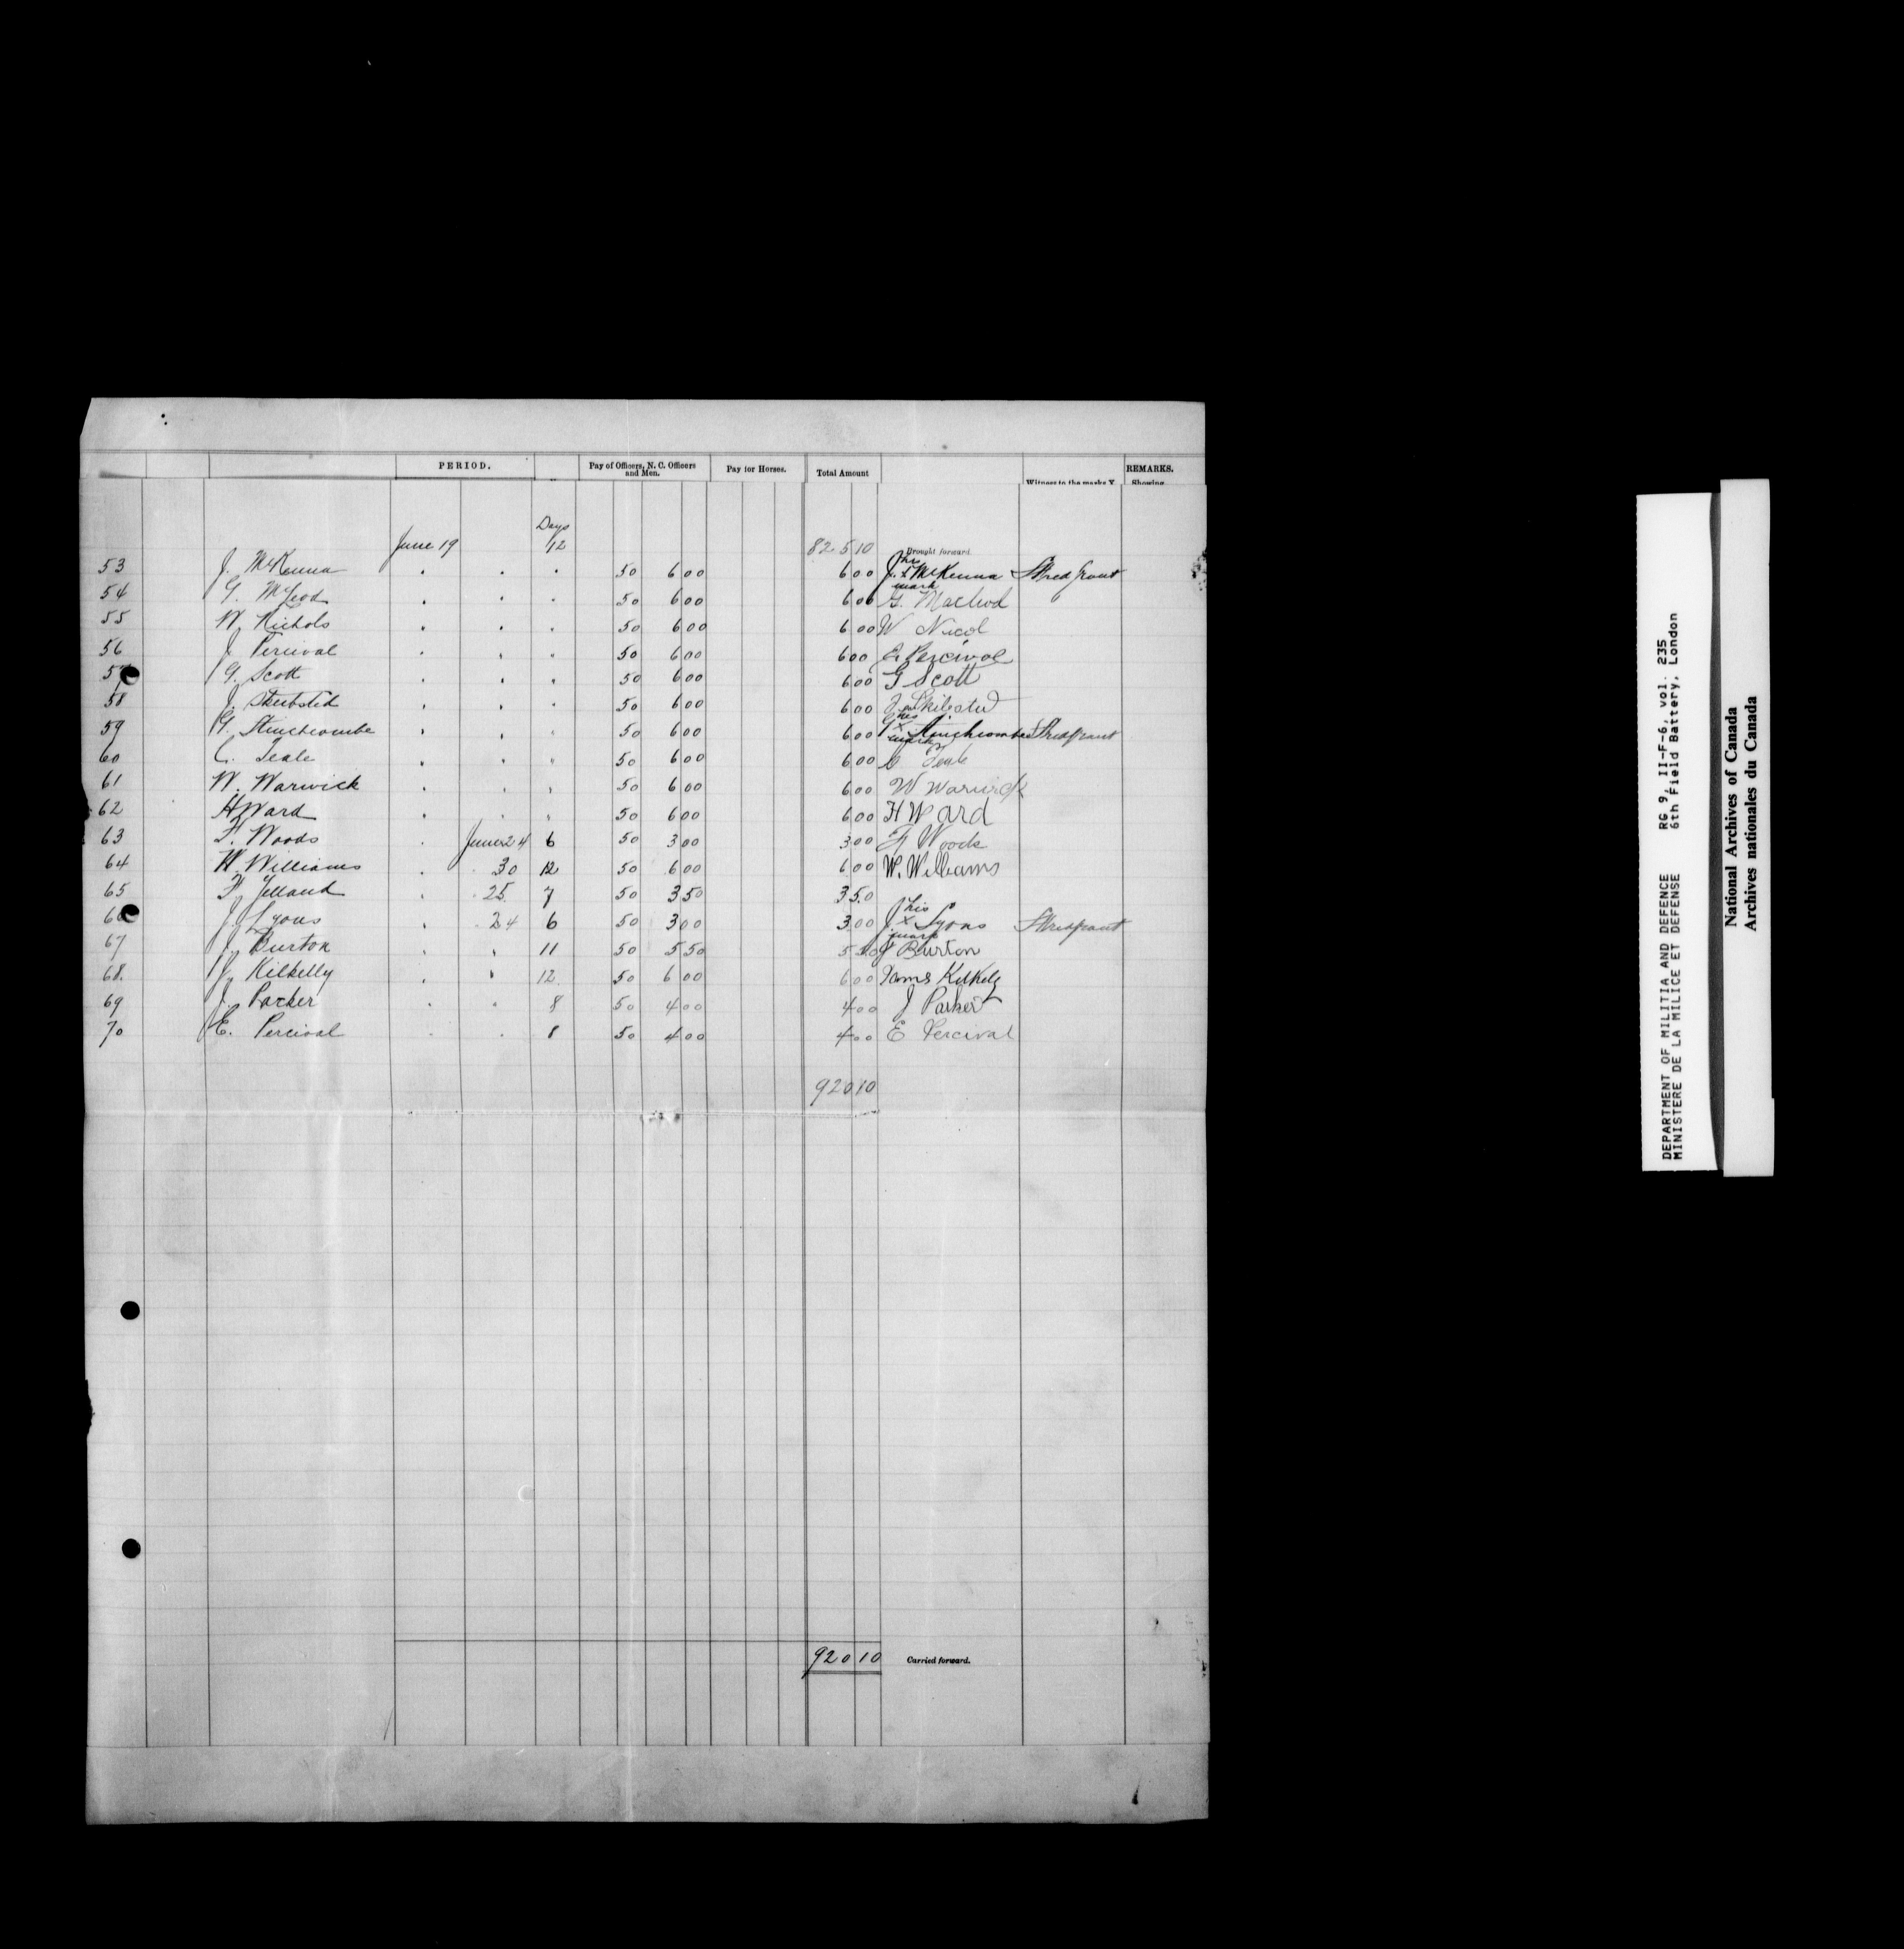 PERIOD. Pay of Officers, N. C. Officers and Men. Pay for Horses. Total Amount Witness to the marks X REMARKS. Showing
Days
June 19 12 825 10 Brought forward.
53 J. McKenna " " " 50 6 00 6 00 J. his x mark McKenna
54 G. McLeod " " " 50 6 00 6 00 G. Macleod
55 W. Nichols " " " 50 6 00 6 00 W Nicol
56 J. Percival " " " 50 6 00 6 00 Percival
57 G. Scott " " " 50 6 00 6 00 G Scott
58 J. " " " 50 6 00 6 00
59 G. Stinchcombe " " " 50 6 00 6 00 G his x mark Stinchcombe
60 C. Teale " " " 50 6 00 6 00 C Teale
61 W. Warwick " " " 50 6 00 6 00 W Warwick
62 H Ward " " " 50 6 00 6 00 H Ward
63 F. Woods " June 24 6 50 3 00 3 00 F Woods
64 W. Williams " " 30 12 50 6 00 6 00 W. Williams
65 F. Yelland " " 25 7 50 3 50 3 50
66 J. Lyons " " 24 6 50 3 00 3 00 J his x mark Lyons
67 J. Burton " " 11 50 5 50 5 50 J Burton
68. J. Kilkelly " " 12 50 6 00 6 00 Kilkely
69 J. Parker " " 8 50 4 00 4 00 J Parker
70 E. Percival " " 8 50 4 00 4 00 E Percival
920 10
920 10 Carried forward.
DEPARTMENT OF MILITIA AND DEFENCE RG 9, II-F-6, vol. 235
MINISTERE DE LA MILICE ET DEFENSE 6th Field Battery, London
National Archives of Canada
Archives nationales du Canada